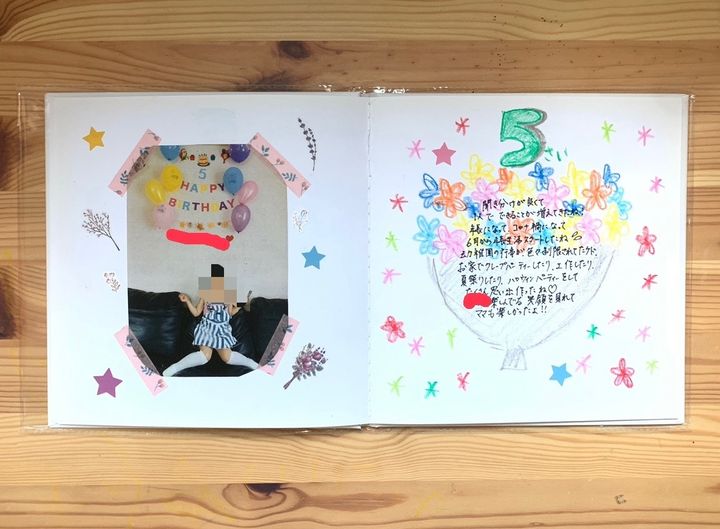 5
HAPPY
BIRTHDAY
5さい
聞き分けが良くて
1人で できることが増えてきたね。
年長になって、コロナ禍になって
6月から年長生活スタートしたね
幼稚園の行事が 色々と制限されてたケド、
お家でクレープパーティーしたり、工作したり、
夏祭りしたり、ハロウィンパーティーをして
たくさん思い出作ったね♡
楽しんでる 笑顔を見れて
ママも楽しかったよ!!